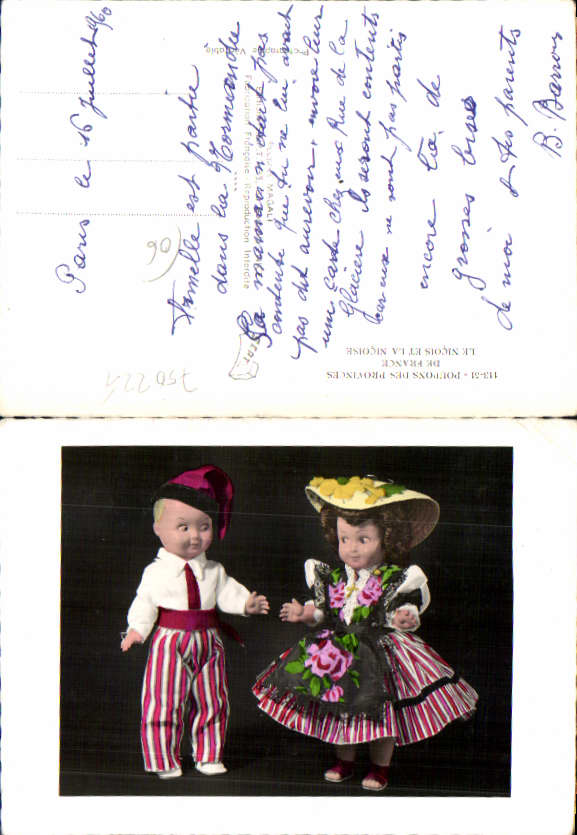 Paris le 16 juillet 1960
Armelle est partie
dans la Normandie
Sa maman n'était pas
contente que tu ne lui avait
pas dit aurevoir, envoie leur
une carte chez eux Rue de la
Glacière ils seront contents
car eux ne sont pas partis
encore là. de
grosses bises
de moi à tes parents
B. Barrois
Photographie Véritable
MAGALI
Fabrication Française Reproduction Interdite
113-51 - POUPONS DES PROVINCES
DE FRANCE
LE NIÇOIS ET LA NIÇOISE
(06)
750224